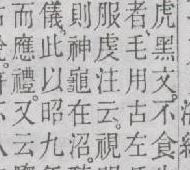 虎黑文不食生
者毛用古左
服虔注云視明
則神龜在沼
儀此以昭九年
而應禮又云